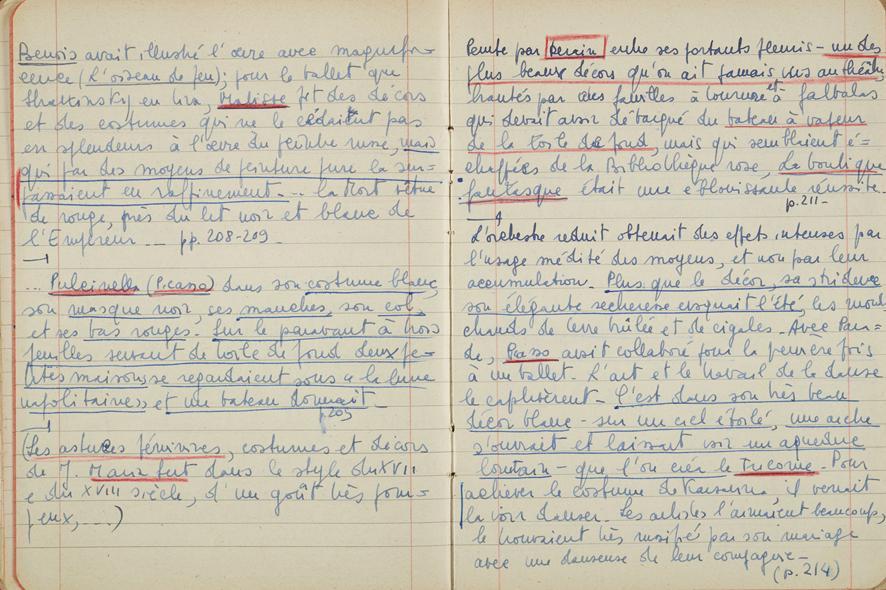 Benois avait illustré l'œvre avec magnifi-
cence (L'oiseau de feu); pour le ballet que
Strawinsky en tira, Matisse fit des décors
et des costumes qui ne le cédaient pas
en splendeurs à l'œvre du peintre russe, mais
qui par des moyens de peinture pure la sur-
passaient en raffinement... la Mort vêtue
de rouge, près du lit noir et blanc de
l'Empereur — pp. 208-209_
... Pulcinella (Picasso) dans son costume blanc,
son masque noir, ses manches, son col,
et ses bas rouges. Sur le paravant à trois
feuilles servant de toile de fond deux pe-
tites maisons se regardaient sous « la lune
napolitaine » et un bateau dormait_
p. 209
(Les astuces féminines, costumes et décors
de J. Maria Sert dans le style du XVII
e du XVIII siècle, d'un goût très pom-
peux,....)
Peinte par Derain entre ses portants fleuris - un des
plus beaux décors qu'on ait jamais vus au théâtre,
hantés par des familles à tournure et à falbalas
qui devait avoir débarqué du bateau à vapeur
de la toile de fond, mais qui semblaient é-
chappées de la Bibliothèque rose, La boutique
fantasque était une éblouissante réussite.
p. 211-
L'orchestre réduit obtenait des effets intenses par
l'usage médité des moyens, et non par leur
accumulation. Plus que le décor, sa stridence
son élégante secheresse evoquait l'été, les
chauds de terre brûlée et de cigales. Avec Para=
de, Passo avait collaboré pour la première fois
à un ballet. L'art et le travail de la danse
le captivèrent. C'est dans son très beau
décor blanc - sur un ciel étoilé, une arche
s'ouvrait et laissait voir un aqueduc
lointain - que l'on créa le Tricorne. Pour
achever le costume de Karsavina, il venait
la voir danser. Les artistes l'aimaient beaucoup,
le trouvaient très par son mariage
avec une danseuse de leur compagnie_
(p. 214)